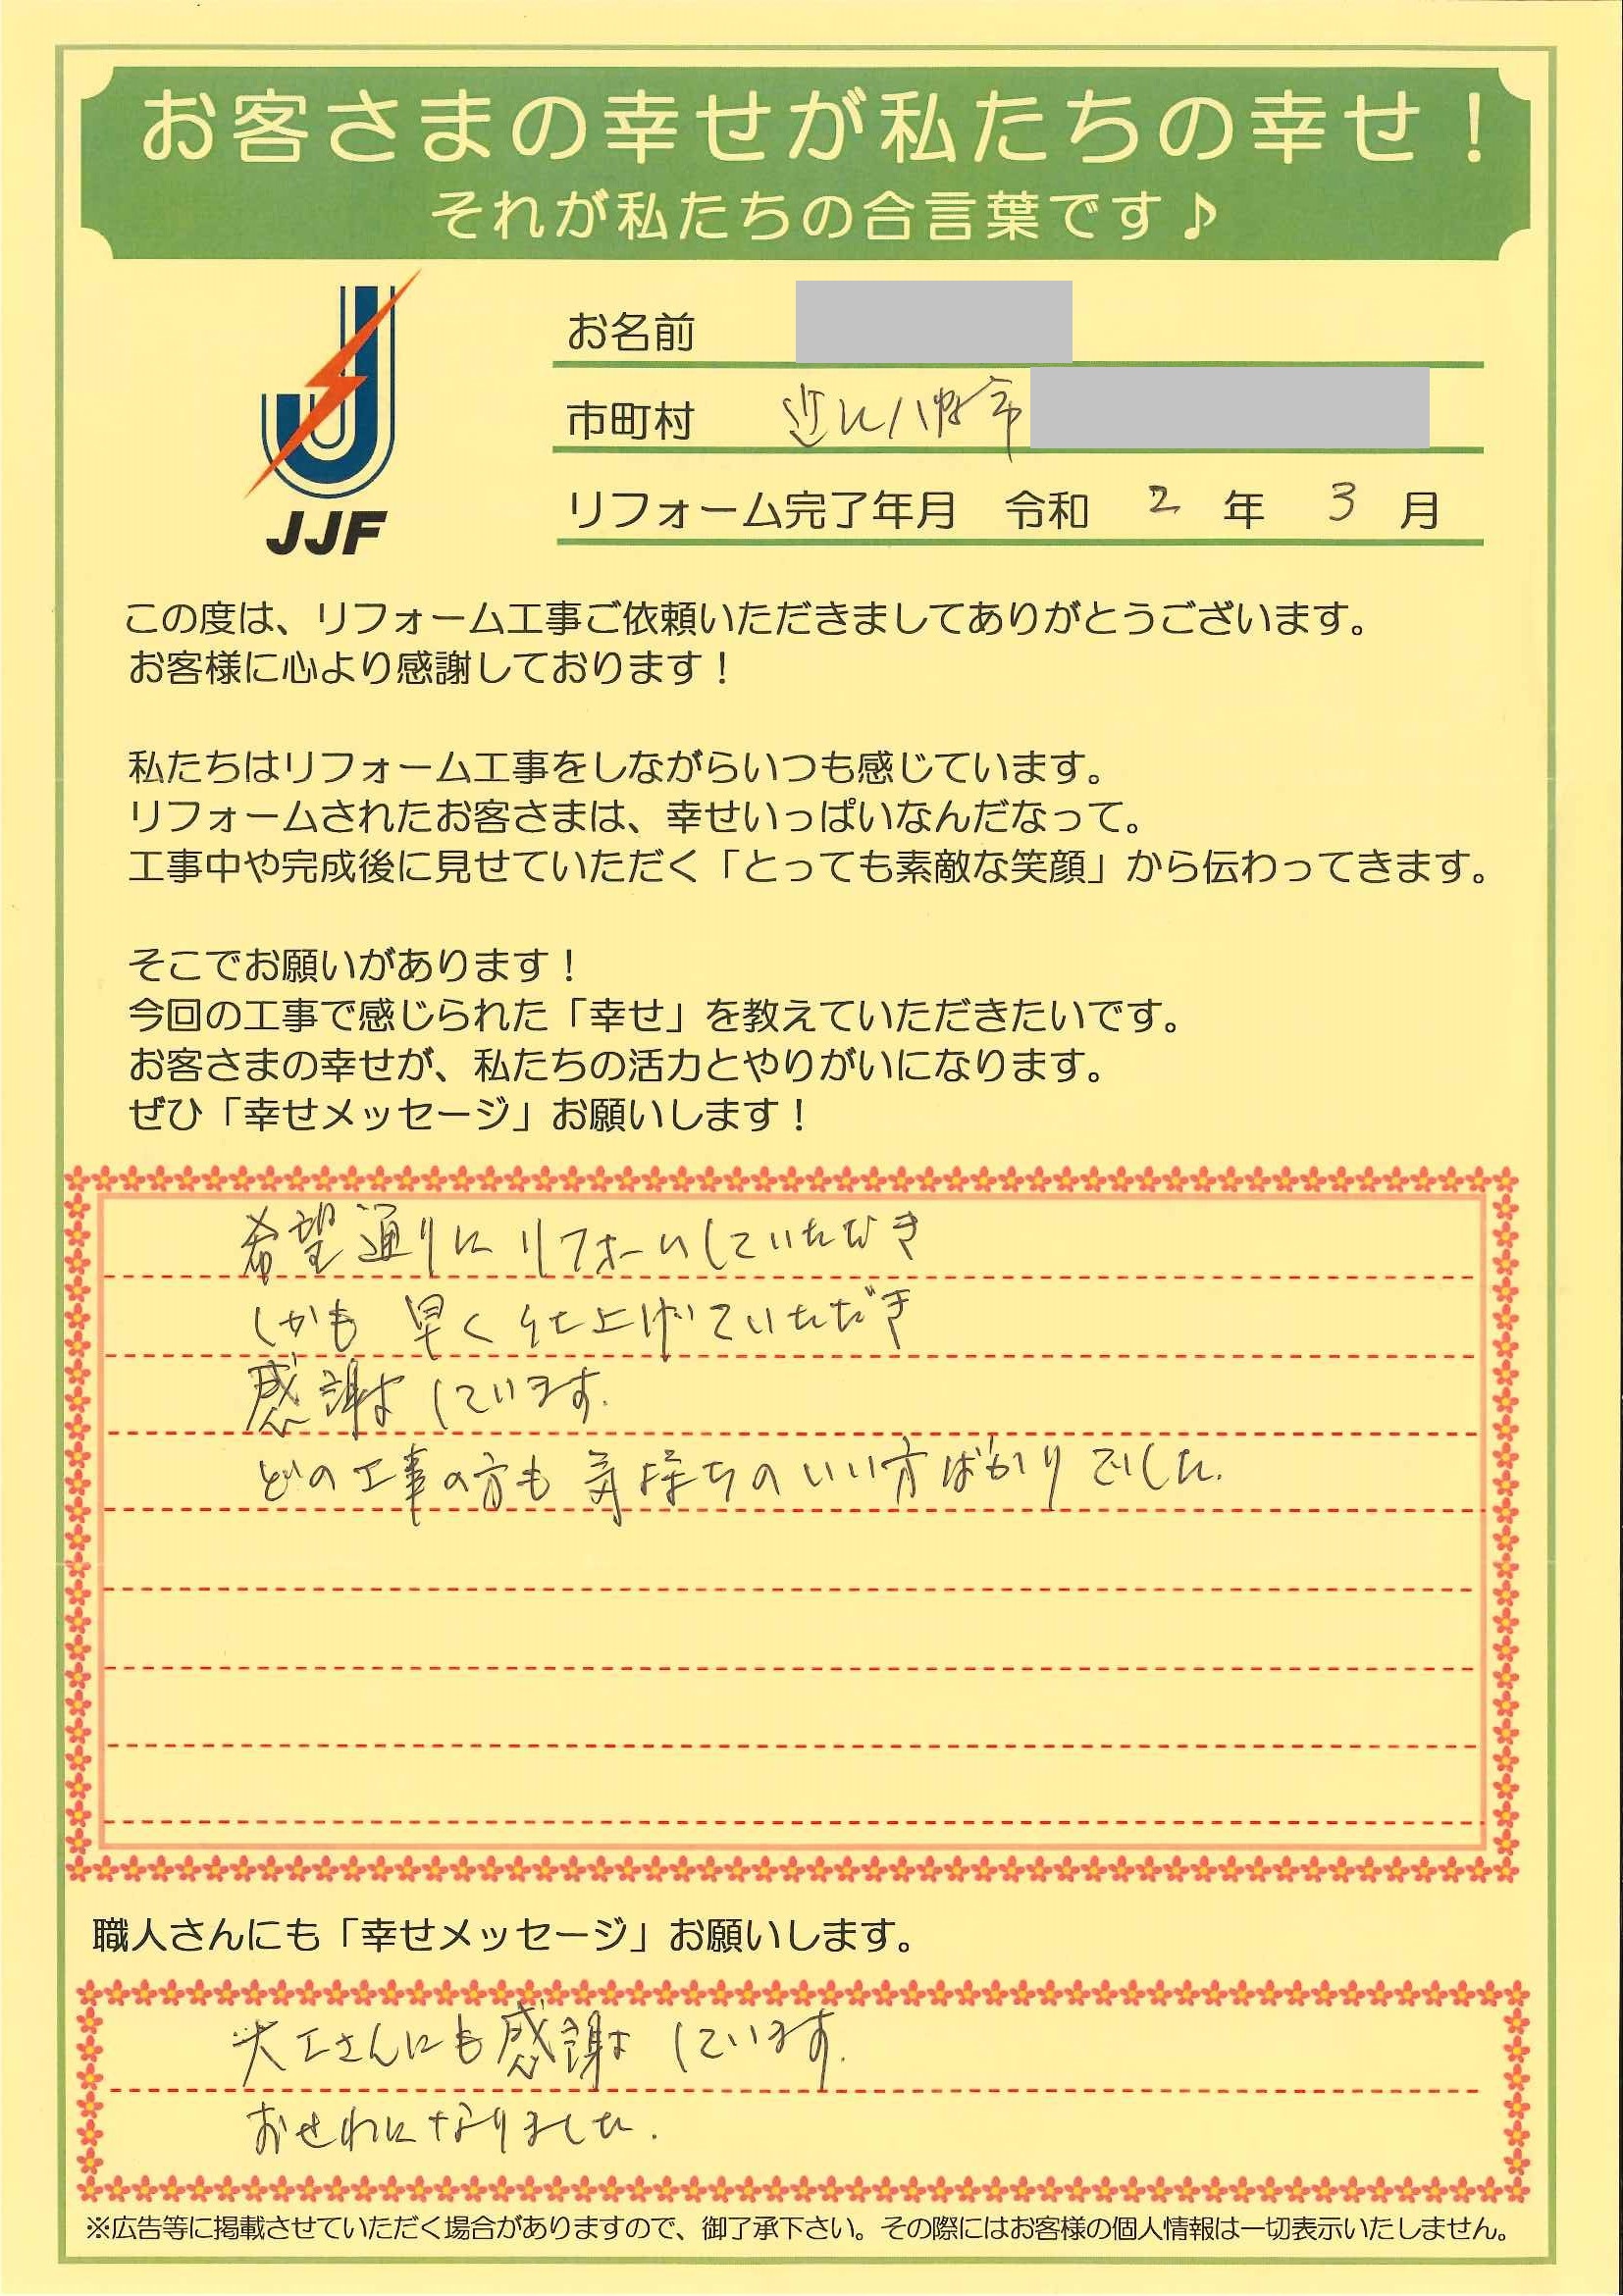 お客さまの幸せが私たちの幸せ！
それが私たちの合言葉です♪
JJF
お名前
市町村 近江八幡市
リフォーム完了年月 令和 2 年 3 月
この度は、リフォーム工事ご依頼いただきましてありがとうございます。
お客様に心より感謝しております！
私たちはリフォーム工事をしながらいつも感じています。
リフォームされたお客さまは、幸せいっぱいなんだなって。
工事中や完成後に見せていただく「とっても素敵な笑顔」から伝わってきます。
そこでお願いがあります！
今回の工事で感じられた「幸せ」を教えていただきたいです。
お客さまの幸せが、私たちの活力とやりがいになります。
ぜひ「幸せメッセージ」お願いします！
希望通りにリフォームしていただき
しかも 早く仕上げていただき
感謝しています.
どの工事の方も 気持ちのいい方ばかりでした.
職人さんにも「幸せメッセージ」お願いします。
大工さんにも感謝しています.
おせわになりました.
※広告等に掲載させていただく場合がありますので、御了承下さい。その際にはお客様の個人情報は一切表示いたしません。